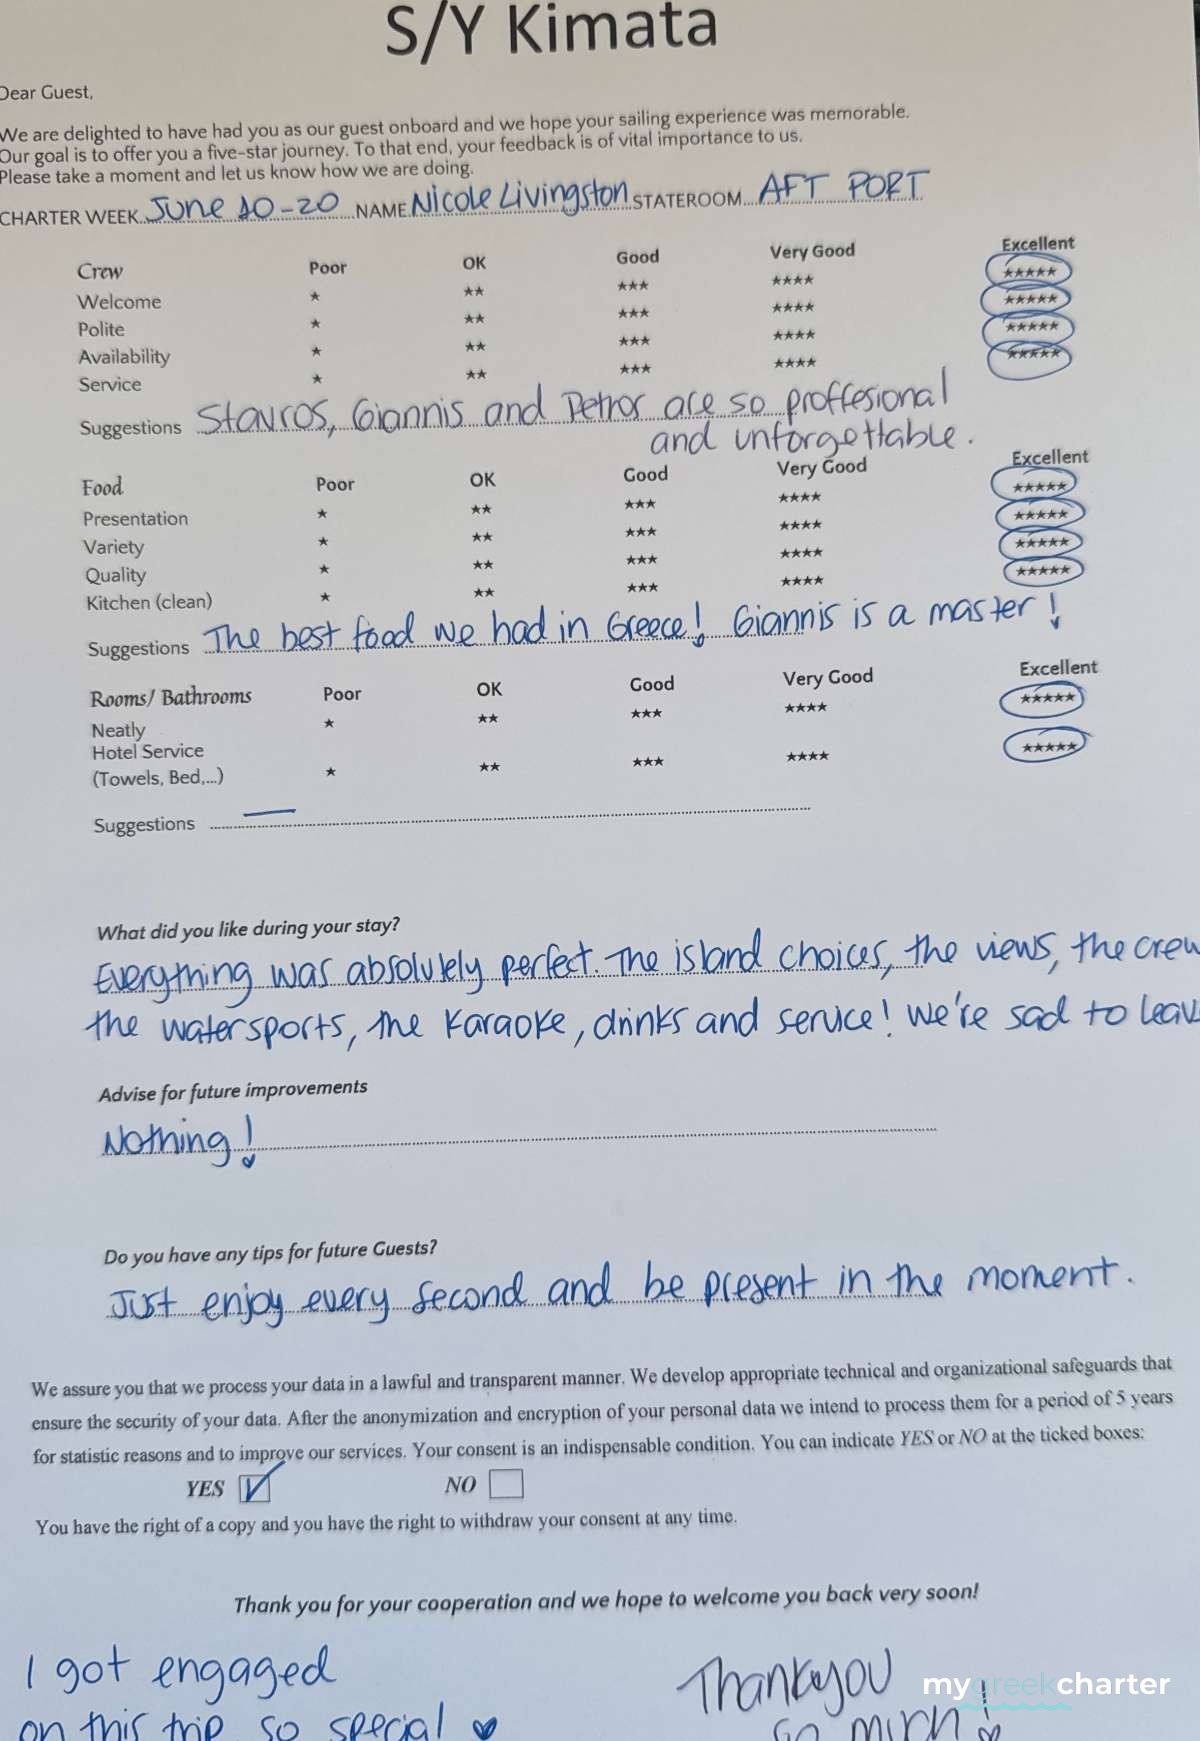 S/Y Kimata
Dear Guest,
We are delighted to have had you as our guest onboard and we hope your sailing experience was memorable.
Our goal is to offer you a five-star journey. To that end, your feedback is of vital importance to us.
Please take a moment and let us know how we are doing.
CHARTER WEEK June 10-20 NAME Nicole Livingston STATEROOM AFT PORT
Crew Poor OK Good Very Good Excellent
Welcome ★ ★★ ★★★ ★★★★ ★★★★★
Polite ★ ★★ ★★★ ★★★★ ★★★★★
Availability ★ ★★ ★★★ ★★★★ ★★★★★
Service ★ ★★ ★★★ ★★★★ ★★★★★
Suggestions Stavros, Giannis and Petros are so proffesional
and unforgettable.
Food Poor OK Good Very Good Excellent
Presentation ★ ★★ ★★★ ★★★★ ★★★★★
Variety ★ ★★ ★★★ ★★★★ ★★★★★
Quality ★ ★★ ★★★ ★★★★ ★★★★★
Kitchen (clean) ★ ★★ ★★★ ★★★★ ★★★★★
Suggestions The best food we had in Greece! Giannis is a master!
Rooms/ Bathrooms Poor OK Good Very Good Excellent
Neatly ★ ★★ ★★★ ★★★★ ★★★★★
Hotel Service
(Towels, Bed,...) ★ ★★ ★★★ ★★★★ ★★★★★
Suggestions —
What did you like during your stay?
Everything was absolutely perfect. The island choices, the views, the crew
the watersports, the karaoke, drinks and service! We're sad to leav
Advise for future improvements
Nothing!
Do you have any tips for future Guests?
Just enjoy every second and be present in the moment.
We assure you that we process your data in a lawful and transparent manner. We develop appropriate technical and organizational safeguards that
ensure the security of your data. After the anonymization and encryption of your personal data we intend to process them for a period of 5 years
for statistic reasons and to improve our services. Your consent is an indispensable condition. You can indicate YES or NO at the ticked boxes:
YES NO
You have the right of a copy and you have the right to withdraw your consent at any time.
Thank you for your cooperation and we hope to welcome you back very soon!
I got engaged
on this trip so special ♥
Thankyou
so much!
mygreekcharter